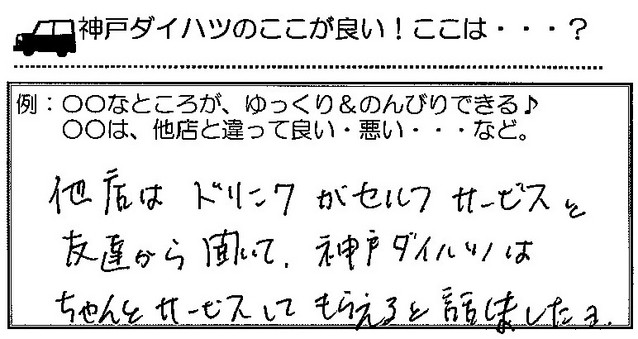 神戸ダイハツのここが良い！ここは・・・？
例：〇〇なところが、ゆっくり＆のんびりできる♪
〇〇は、他店と違って良い・悪い・・・など。
他店は ドリンク がセルフ サービスと
友達から聞いて、神戸ダイハツは
ちゃんとサービスして もらえると話しましたヨ.